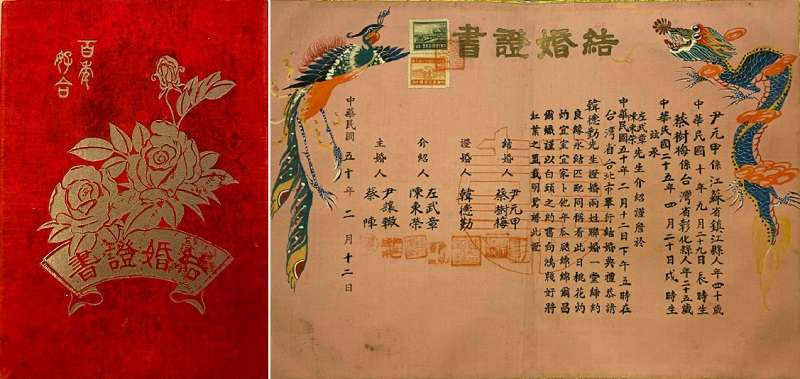 百年
好合
結婚證書
結婚證書
尹元甲係江蘇省鎮江縣人年四十歲
中華民國十年九月二十九日辰時生
蔡樹梅係台灣省彰化縣人年二十五歲
中華民國二十五年四月二十日戌時生
茲承
左武章
陳東榮
先生介紹謹詹於
中華民國五十年二月十二日下午五時在
台灣省台北市舉行結婚典禮恭請
韓德勤先生證婚兩姓聯婚一堂締約
良緣永結匹配同稱看此日桃花灼
灼宜室宜家卜他年瓜瓞綿綿爾昌
爾熾謹以白頭之約書向鴻箋好將
紅葉之盟載明鴛譜此證
結婚人
尹元甲
蔡樹梅
證婚人
韓德勤
介紹人
左武章
陳東榮
主婚人
尹
蔡陣
中華民國五十年二月十二日